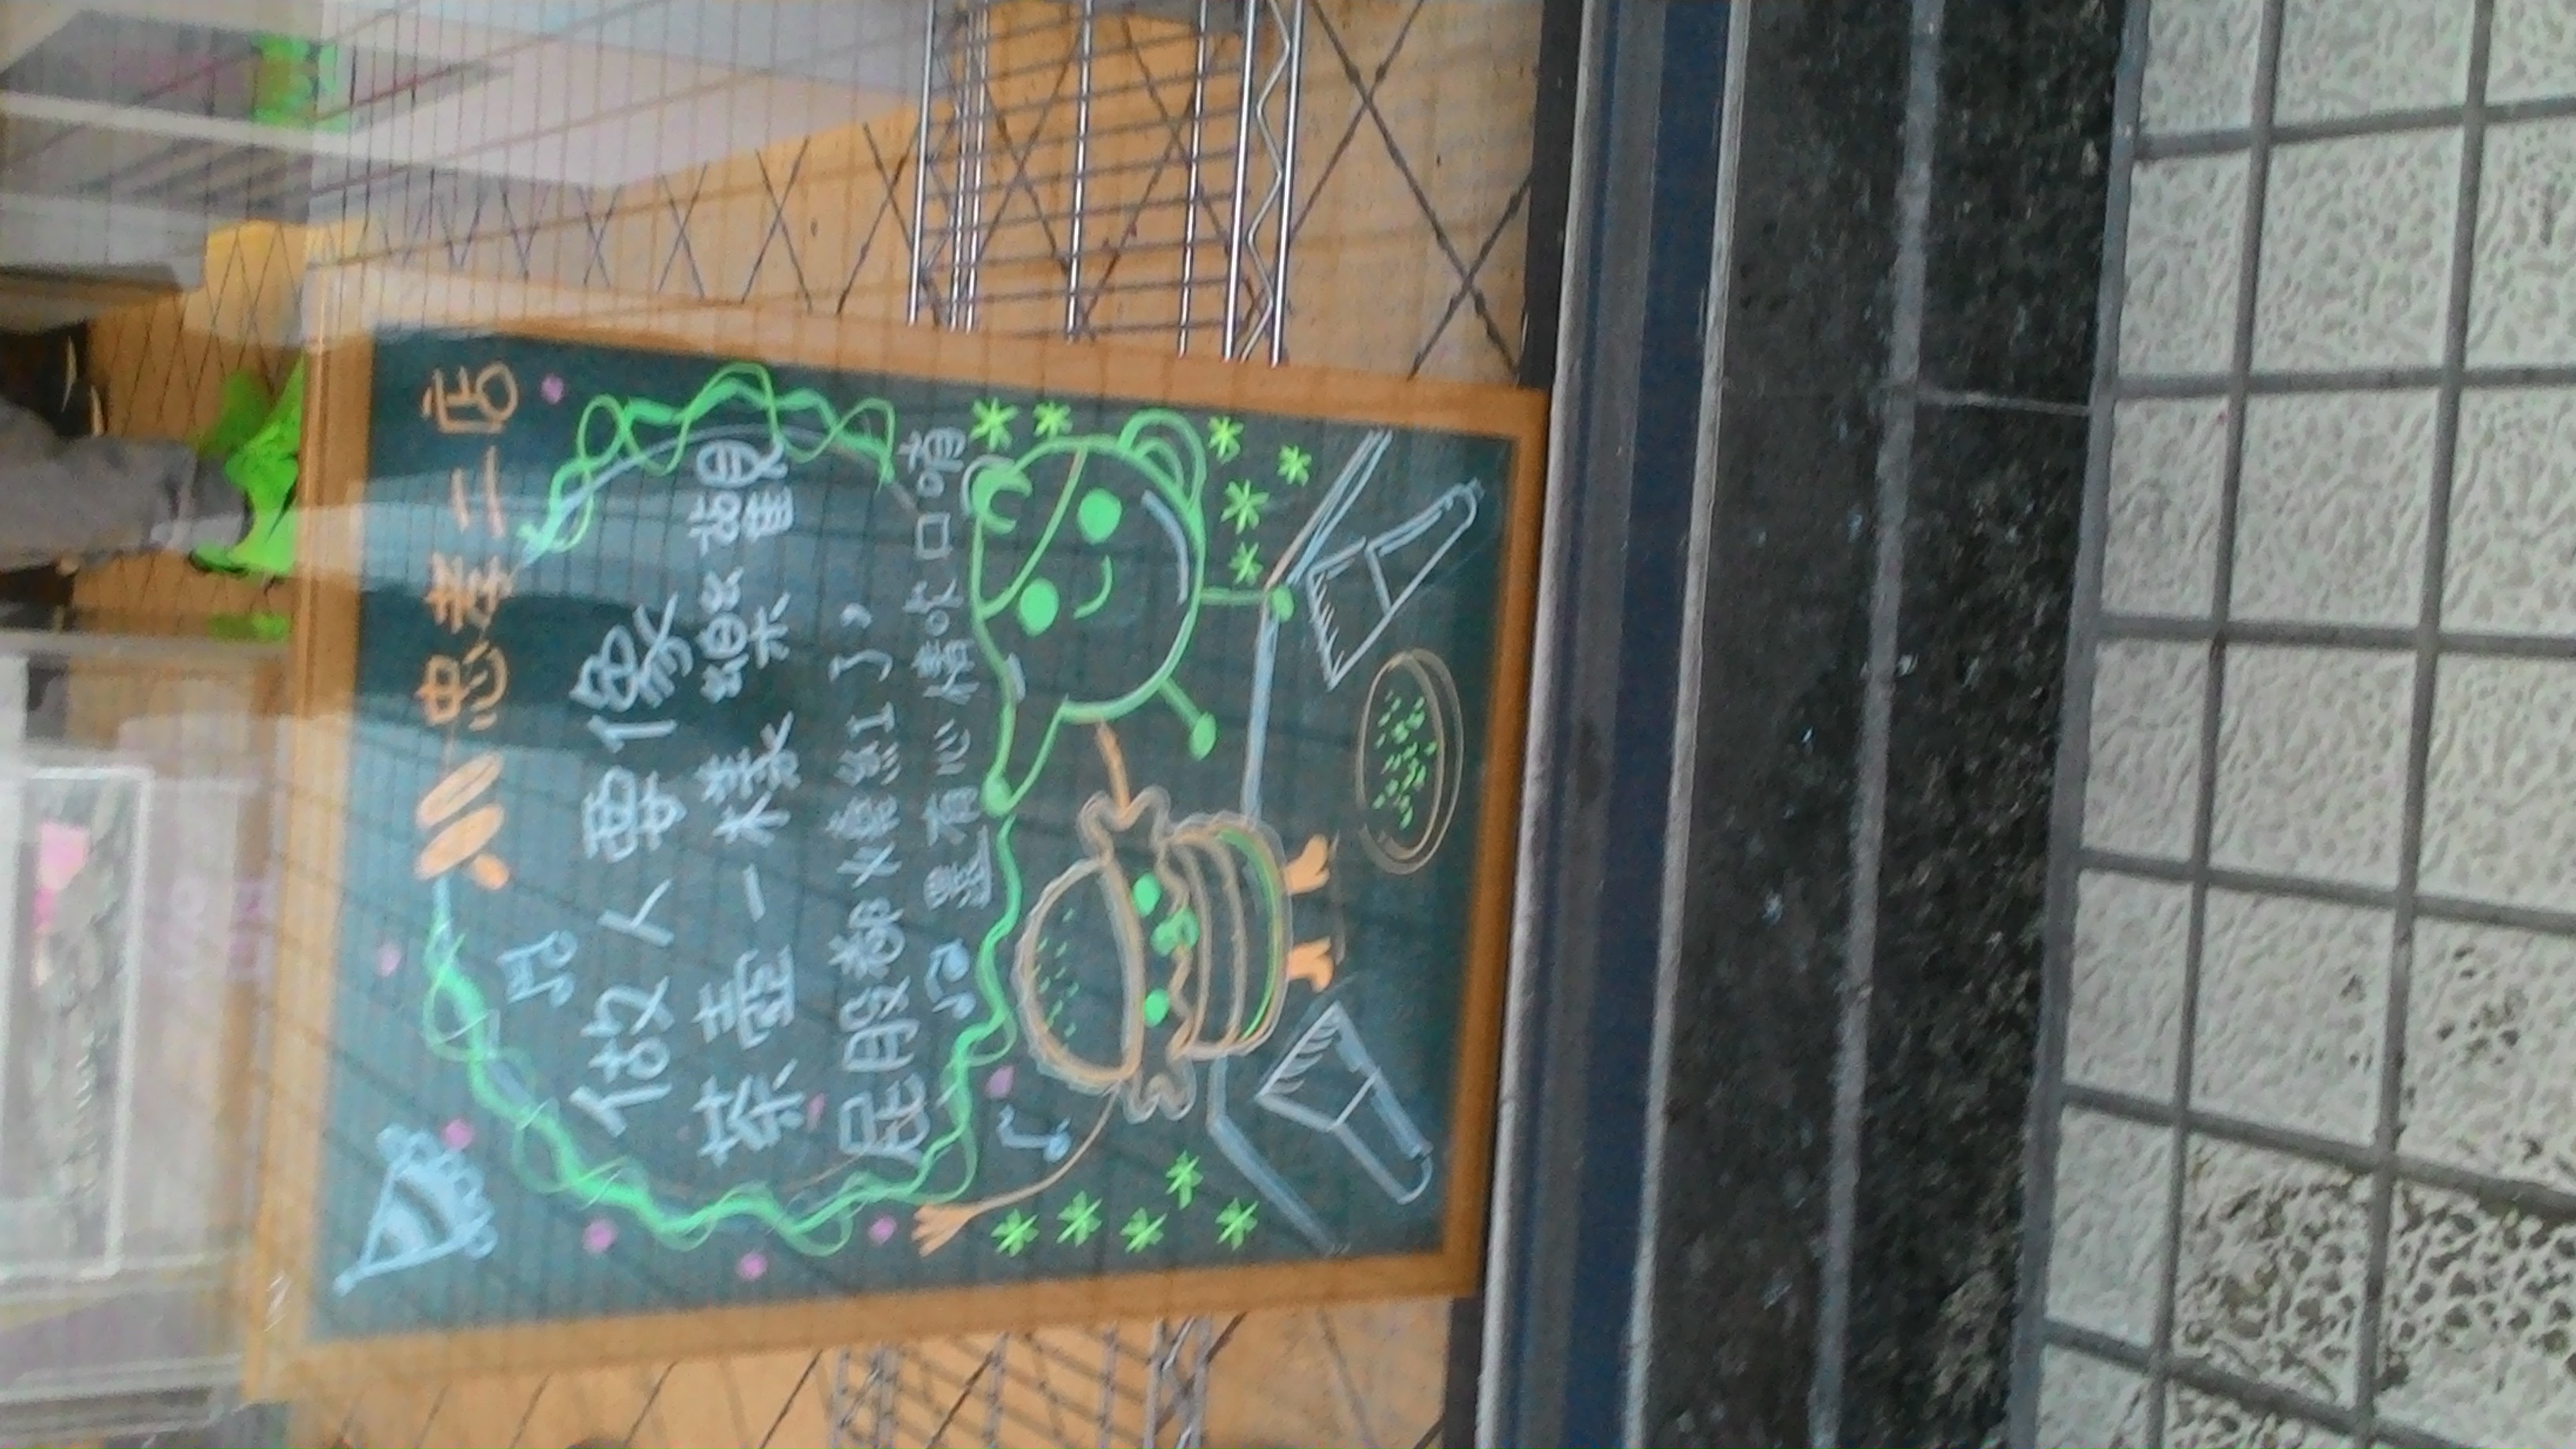 忠孝二店
做人要像
茶壺一樣樂觀
屁股都燒紅了，
還有心情吹口哨